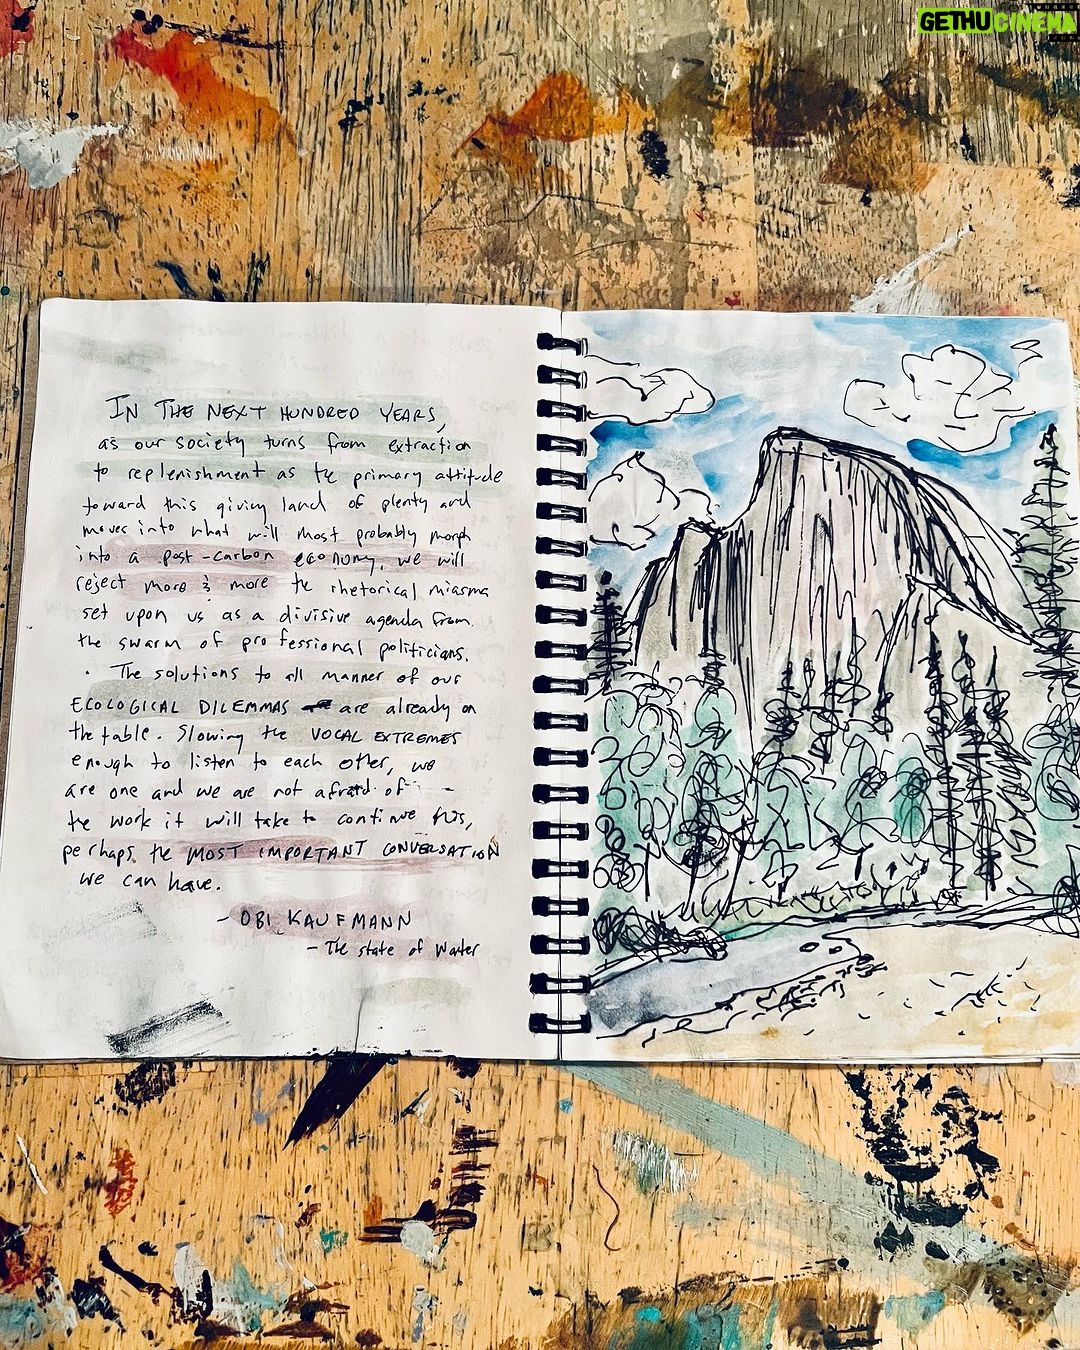 GETHU CINEMA
IN THE NEXT HUNDRED YEARS,
as our society turns from extraction
to replenishment as the primary attitude
toward this giving land of plenty and
moves into what will most probably morph
into a post-carbon economy, we will
reject more & more the rhetorical miasma
set upon us as a divisive agenda from
the swarm of professional politicians.
. The solutions to all manner of our
ECOLOGICAL DILEMMAS are already on
the table. Slowing the VOCAL EXTREMES
enough to listen to each other, we
are one and we are not afraid of
the work it will take to continue this,
perhaps the MOST IMPORTANT CONVERSATION
we can have.
- OBI KAUFMANN
- The state of Water